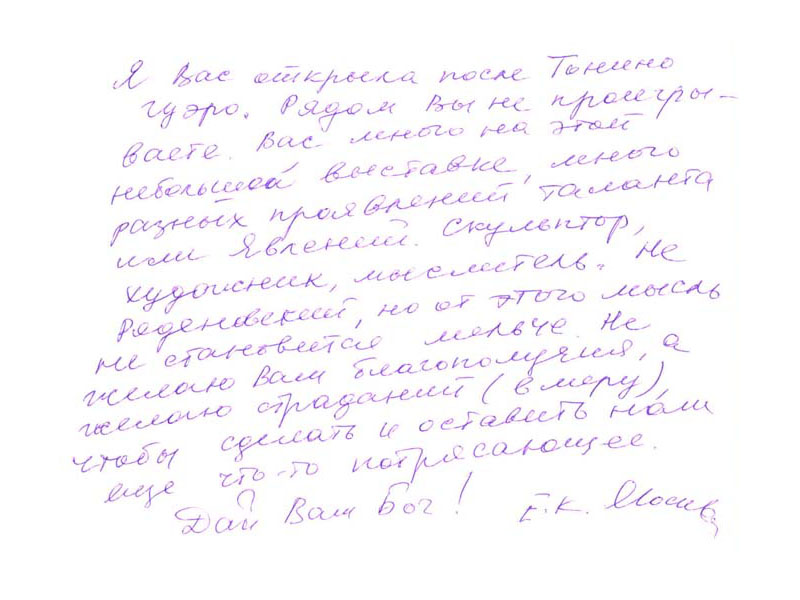 Я Вас открыла после Тонино
гуэро. Рядом Вы не проигры-
ваете. Вас много на этой
небольшой выставке, много
разных проявлений таланта
или Явлений. Скульптор,
художник, мыслитель. Не
Роденовский, но от этого мысль
не становится мельче. Не
желаю Вам благополучия, а
желаю страданий (в меру),
чтобы сделать и оставить нам
еще что-то потрясающее.
Дай Вам Бог! Е.К. Москва